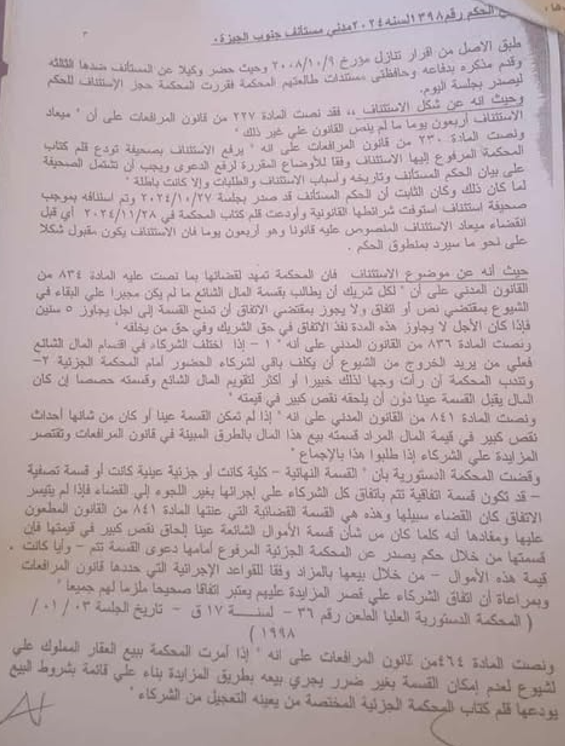 الحكم رقم ١٣٩٨ لسنه ٢٠٢٤ مدني مستأنف جنوب الجيزة .
٣
طبق الاصل من اقرار تنازل مؤرخ ٢٠٠٨/١٠/٩ وحيث حضر وكيلا عن المستأنف ضدها الثالثه
وقدم مذكره بدفاعه وحافظتى مستندات طالعتيم المحكمة فقررت المحكمة حجز الإستئناف للحكم
ليصدر بجلسة اليوم.
وحيث انه عن شكل الاستئناف ،، فقد نصت المادة ٢٢٧ من قانون المرافعات على أن " ميعاد
الاستئناف أربعون يوما ما لم ينص القانون علي غير ذلك "
ونصت المادة ٢٣٠ من قانون المرافعات على أنه " يرفع الاستئناف بصحيفة تودع قلم كتاب
المحكمة المرفوع إليها الاستئناف وفقا للأوضاع المقررة لرفع الدعوى ويجب أن تشتمل الصحيفة
على بيان الحكم المستأنف وتاريخه وأسباب الاستئناف والطلبات وإلا كانت باطلة "
لما كان ذلك وكان الثابت أن الحكم المستأنف قد صدر بجلسة ٢٠٢٤/١٠/٢٧ وتم استئنافه بموجب
صحيفة استئناف استوفت شرائطها القانونية وأودعت قلم كتاب المحكمة في ٢٠٢٤/١١/٢٨ أي قبل
انقضاء ميعاد الاستئناف المنصوص عليه قانونا وهو أربعون يوما فان الاستئناف يكون مقبول شكلا
على نحو ما سيرد بمنطوق الحكم .
حيث أنه عن موضوع الاستئناف فإن المحكمة تمهد لقضائها بما نصت عليه المادة ٨٣٤ من
القانون المدني على أن " لكل شريك أن يطالب بقسمة المال الشائع ما لم يكن مجبرا علي البقاء في
الشيوع بمقتضي نص أو اتفاق ولا يجوز بمقتضي الاتفاق أن تمنح القسمة إلى اجل يجاوز ٥ سنين
فإذا كان الأجل لا يجاوز هذه المدة نفذ الاتفاق في حق الشريك وفي حق من يخلفه "
ونصت المادة ٨٣٦ من القانون المدني على أنه " ١ – إذا اختلف الشركاء في اقتسام المال الشائع
فعلي من يريد الخروج من الشيوع أن يكلف باقي لشركاء الحضور أمام المحكمة الجزئية ٢–
وتندب المحكمة أن رأت وجها لذلك خبيرا أو أكثر لتقويم المال الشائع وقسمته حصصا إن كان
المال يقبل القسمة عينا دون أن يلحقه نقص كبير في قيمته "
ونصت المادة ٨٤١ من القانون المدني على انه " إذا لم تمكن القسمة عينا أو كان من شانها أحداث
نقص كبير في قيمة المال المراد قسمته بيع هذا المال بالطرق المبينة في قانون المرافعات وتقتصر
المزايدة علي الشركاء إذا طلبوا هذا بالإجماع "
وقضت المحكمة الدستورية بان " القسمة النهائية – كلية كانت أو جزئية عينية كانت أو قسمة تصفية
– قد تكون قسمة اتفاقية تتم باتفاق كل الشركاء علي إجرائها بغير اللجوء إلي القضاء فإذا لم يتيسر
الاتفاق كان القضاء سبيلها وهذه هي القسمة القضائية التي عنتها المادة ٨٤١ من القانون المطعون
عليها ومفادها أنه كلما كان من شأن قسمة الأموال الشائعة عينا إلحاق نقص كبير في قيمتها فإن
قسمتها من خلال حكم يصدر عن المحكمة الجزئية المرفوع أمامها دعوى القسمة تتم – وأيا كانت
قيمة هذه الأموال – من خلال بيعها بالمزاد وفقا للقواعد الإجرائية التي حددها قانون المرافعات
وبمراعاة أن اتفاق الشركاء علي قصر المزايدة عليهم يعتبر اتفاقا صحيحا ملزما لهم جميعا "
( المحكمة الدستورية العليا الطعن رقم ٣٦ – لسنة ١٧ ق – تاريخ الجلسة ٠٣ / ٠١ /
١٩٩٨ )
ونصت المادة ٤٦٤من قانون المرافعات على انه " إذا أمرت المحكمة ببيع العقار المملوك علي
لشيوع لعدم إمكان القسمة بغير ضرر يجري بيعه بطريق المزايدة بناء علي قائمة بشروط البيع
يودعها قلم كتاب المحكمة الجزئية المختصة من يعينه التعجيل من الشركاء "